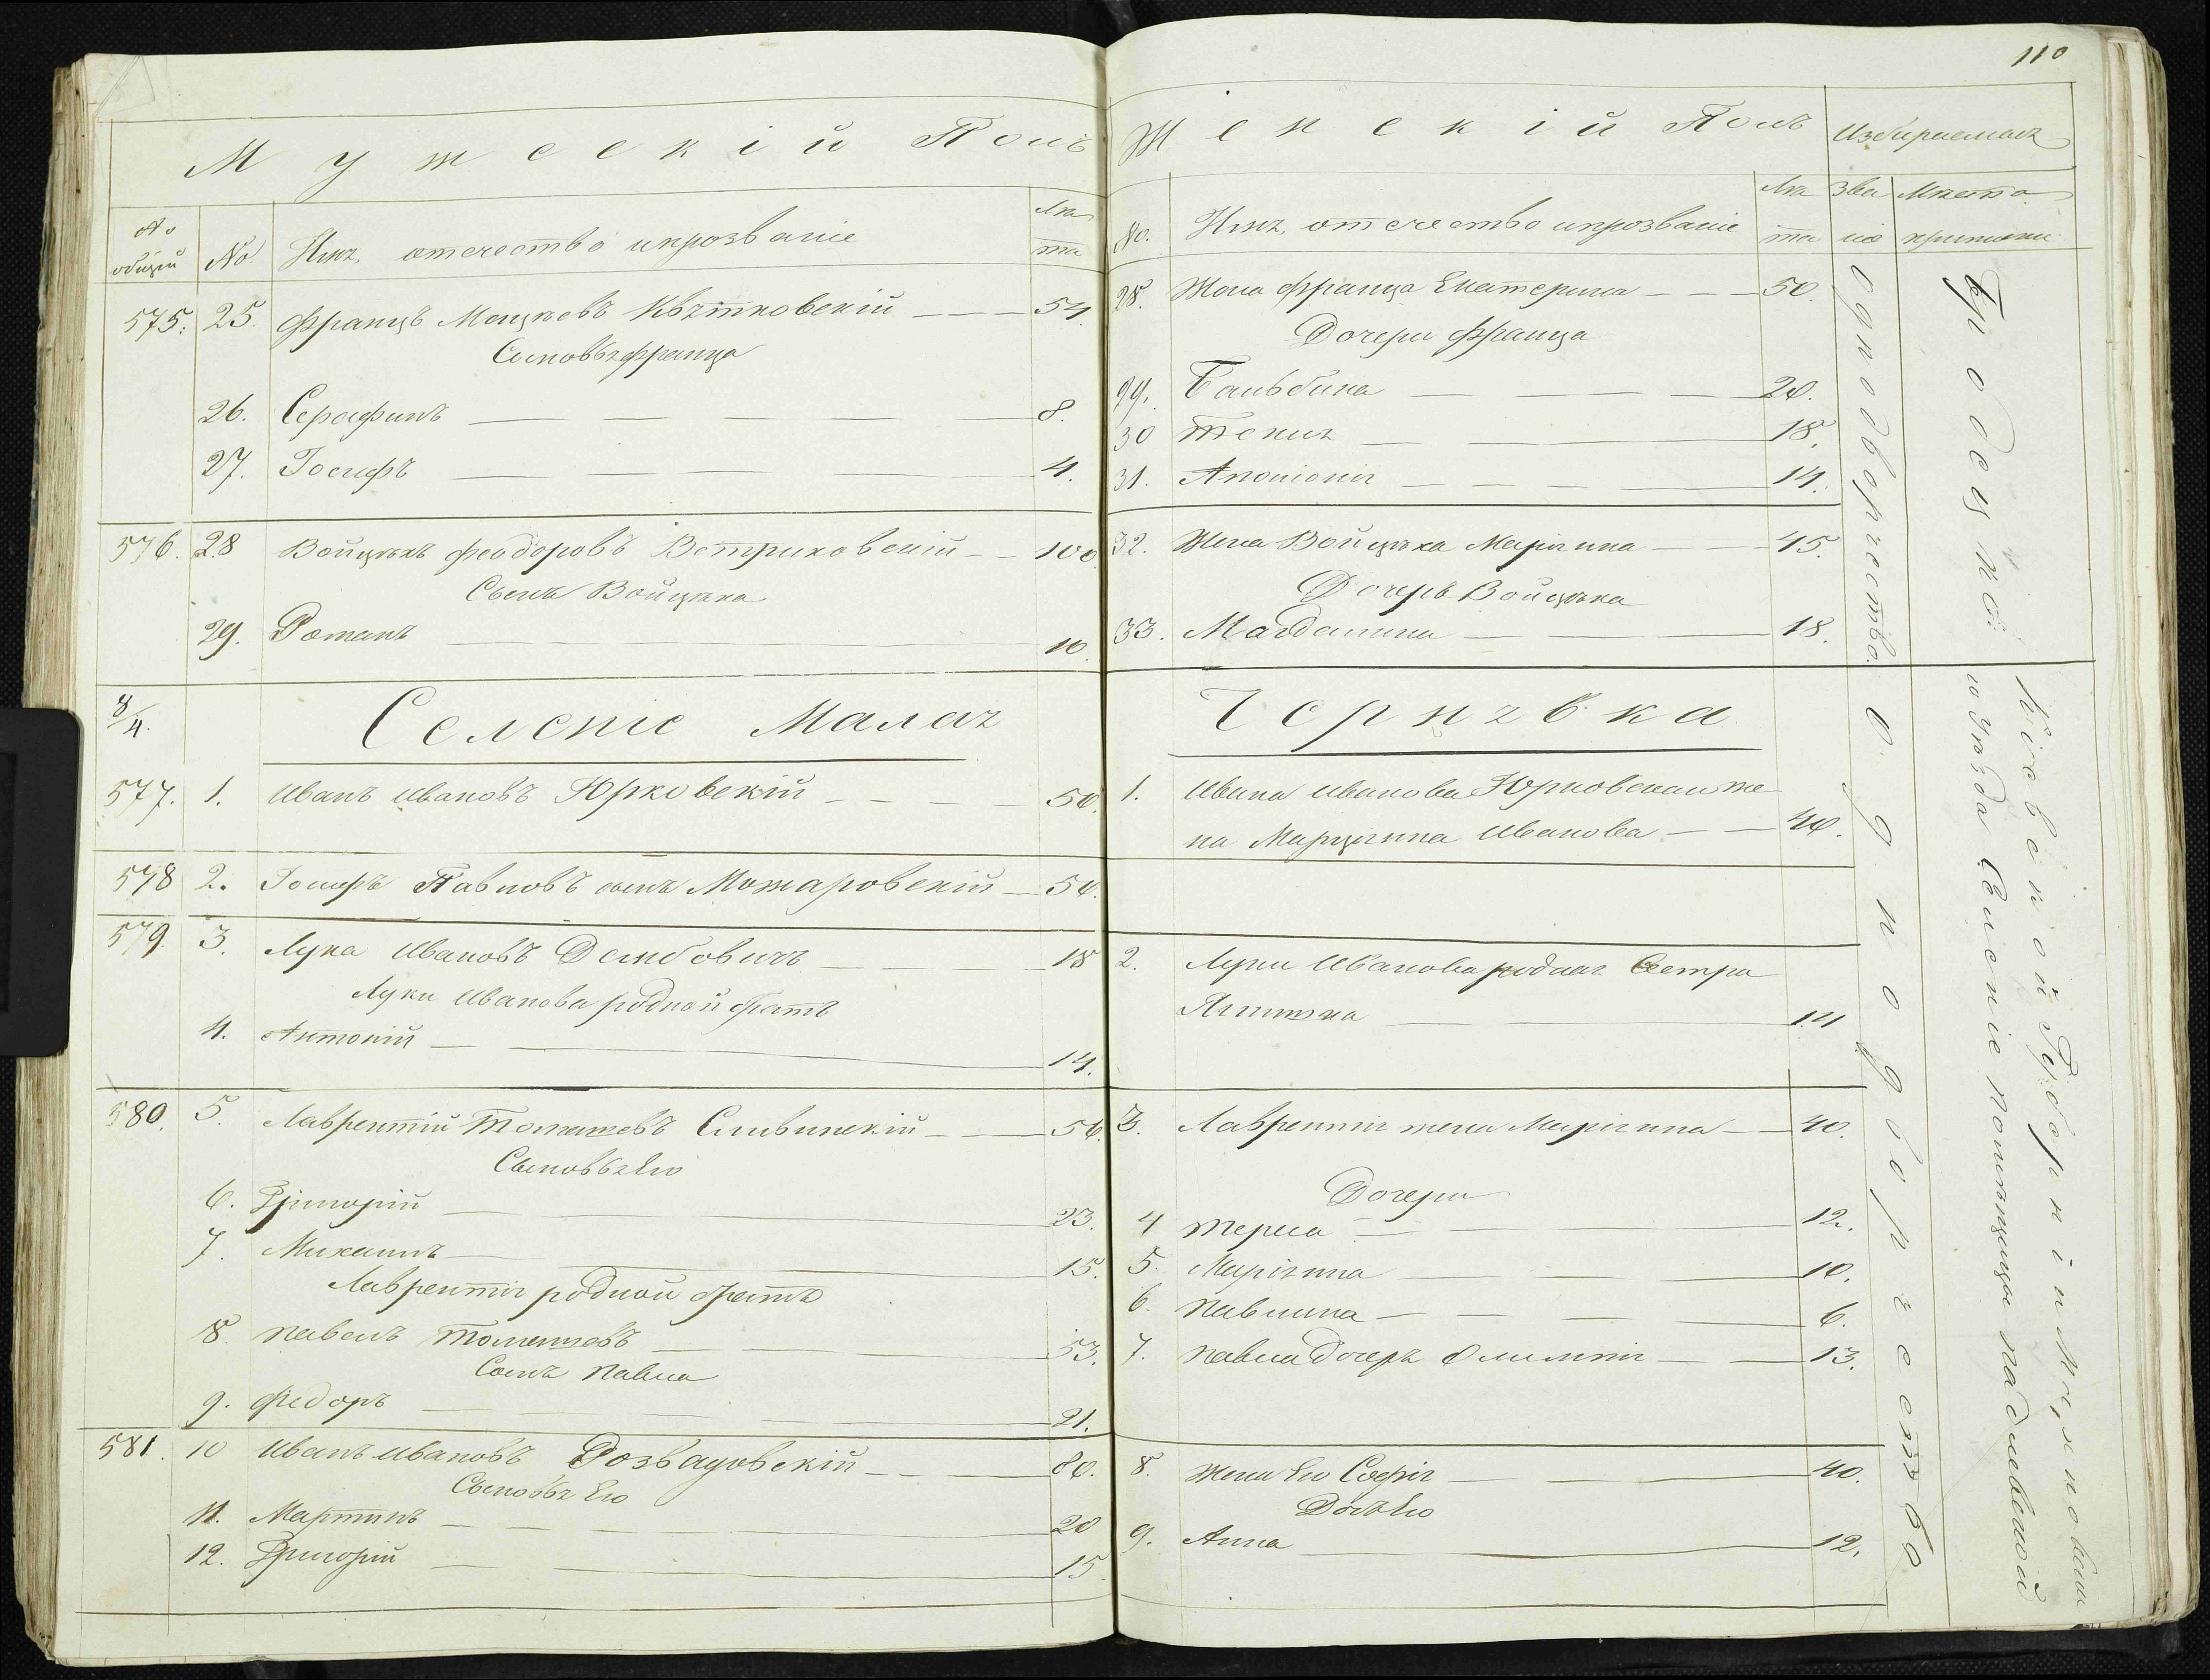 110
Мужескій Полъ
№ общій
№
Имя, отечество и прозваніе
Лѣта
575. 25. Францъ Мацѣевъ Квѣтковскій 54
Сыновья Франца
26. Серафинъ 8.
27. Іосифъ 4.
576. 28 Войцѣхъ Феодоровъ Ветриховскій 100
Сынъ Войцѣха
29. Романъ 10.
8/4. Селеніе Малая
577. 1. Иванъ Ивановъ Юрковскій 50.
578 2. Іосифъ Павловъ сынъ Можаровскій 50.
579. 3. Лука Ивановъ Дембовичъ 18
Луки Иванова родной братъ
4. Антоній 14.
580. 5. Лаврентій Томашевъ Сливинскій 56.
Сыновья Его
6. Григорій 23.
7. Михаилъ 15.
Лаврентія родной братъ
8. Павелъ Томашевъ 53.
Сынъ Павла
9. Федоръ 21.
581. 10 Иванъ Ивановъ Розвадовскій 80.
Сыновья Его
11. Мартинъ 20
12. Григорій 15.
Женскій Полъ
Избираемыя
№.
Имя, отечество и прозваніе
Лѣта
Званіе
Мѣсто приписки
28. Жена Франца Екатерина 50.
Дочери Франца
29. Бальбина 20.
30 Текля 18.
31. Аполонія 14.
32. Жена Войцѣха Маріяна 45.
Дочерь Войцѣха
33. Магдалина 18.
Чернявка
1. Ивана Иванова Юрковскаго же
на Марціянна Иванова 40.
2. Луки Иванова родная Сестра
14
3. Лаврентія жена Маріянна 40.
Дочери
4 Тереса 12.
5. Маріянна 10.
6. Павлина 6.
7. Павла дочерь Олимпія 13.
8. Жена Его Софія 40.
Дочь Его
9. Анна 12.
Однодворчество.
Однодворчество
Кіевской Губерніи Махновска
го уѣзда Селеніе помѣщицы